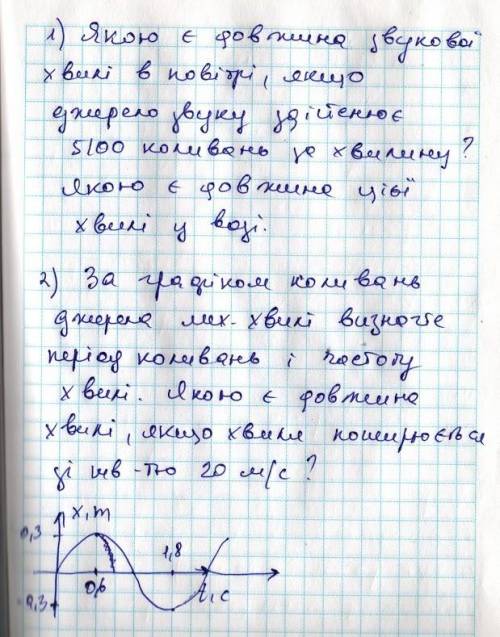 1) Якою є довжина звукової
хвилі в повітрі, якщо
джерело звуку здійснює
5100 коливань за хвилину?
Якою є довжина цієї
хвилі у воді.
2) За графіком коливань
джерела мех. хвилі визначте
період коливань і частоту
хвилі. Якою є довжина
хвилі, якщо хвиля поширюється
зі шв-тю 20 м/с?
x, m
0,3
1,8
0,6
t, c
-0,3